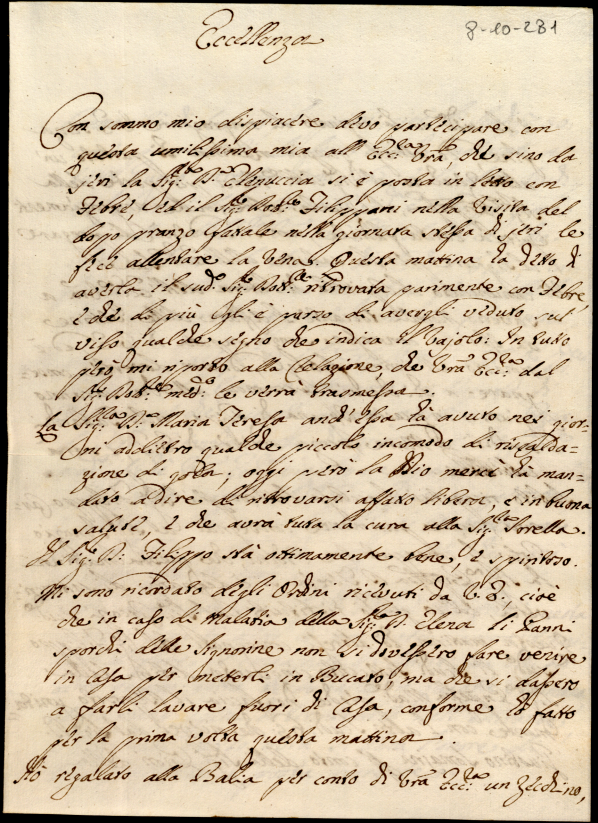 8-10-281
Eccellenza
Con sommo mio dispiacere devo partecipare con
questa umilissima mia all' Ecc:za Vrã, che sino da
jeri la Sig:ra D:a Elenuccia si è posta in letto con
Febre, ed il Sig:r Dott:re Filippani nella Visita del
dopo pranzo fattale nella giornata stessa di jeri le
fece allentare la vena. Questa mattina hà detto di
averla il sud:o Sig:r Dott:re ritrovata parimente con Febre,
e che di più Egli è parso di avergli veduto sul
viso qualche segno che indica il Vajolo: In tutto
però mi riporto alla Relazione, che Vrã Ecc:za dal
Sig:r Dott:re med:o le verrà trasmessa.
La Sig:ra D:a Maria Teresa anch'Essa hà avuto nei gior-
ni addietro qualche piccolo incomodo di riscalda-
zione di gola; oggi però la Dio mercè hà man-
dato a dire di ritrovarsi affatto libera, e in buona
salute, e che avrà tutta la cura alla Sig:ra Sorella.
Il Sig:r D: Filippo stà ottimamente bene, e spiritoso.
Mi sono ricordato degli Ordini ricevuti da V. E., cioè
che in caso di malatia della Sig:ra D. Elena li Panni
sporchi delle Signorine non si dovessero fare venire
in Casa per metterli in Bucato, ma che si dassero
a farli lavare fuori di Casa, conforme hò fatto
per la prima volta questa mattina.
Hò regalato alla Balia per conto di Vrã Ecc:za un zecchino,